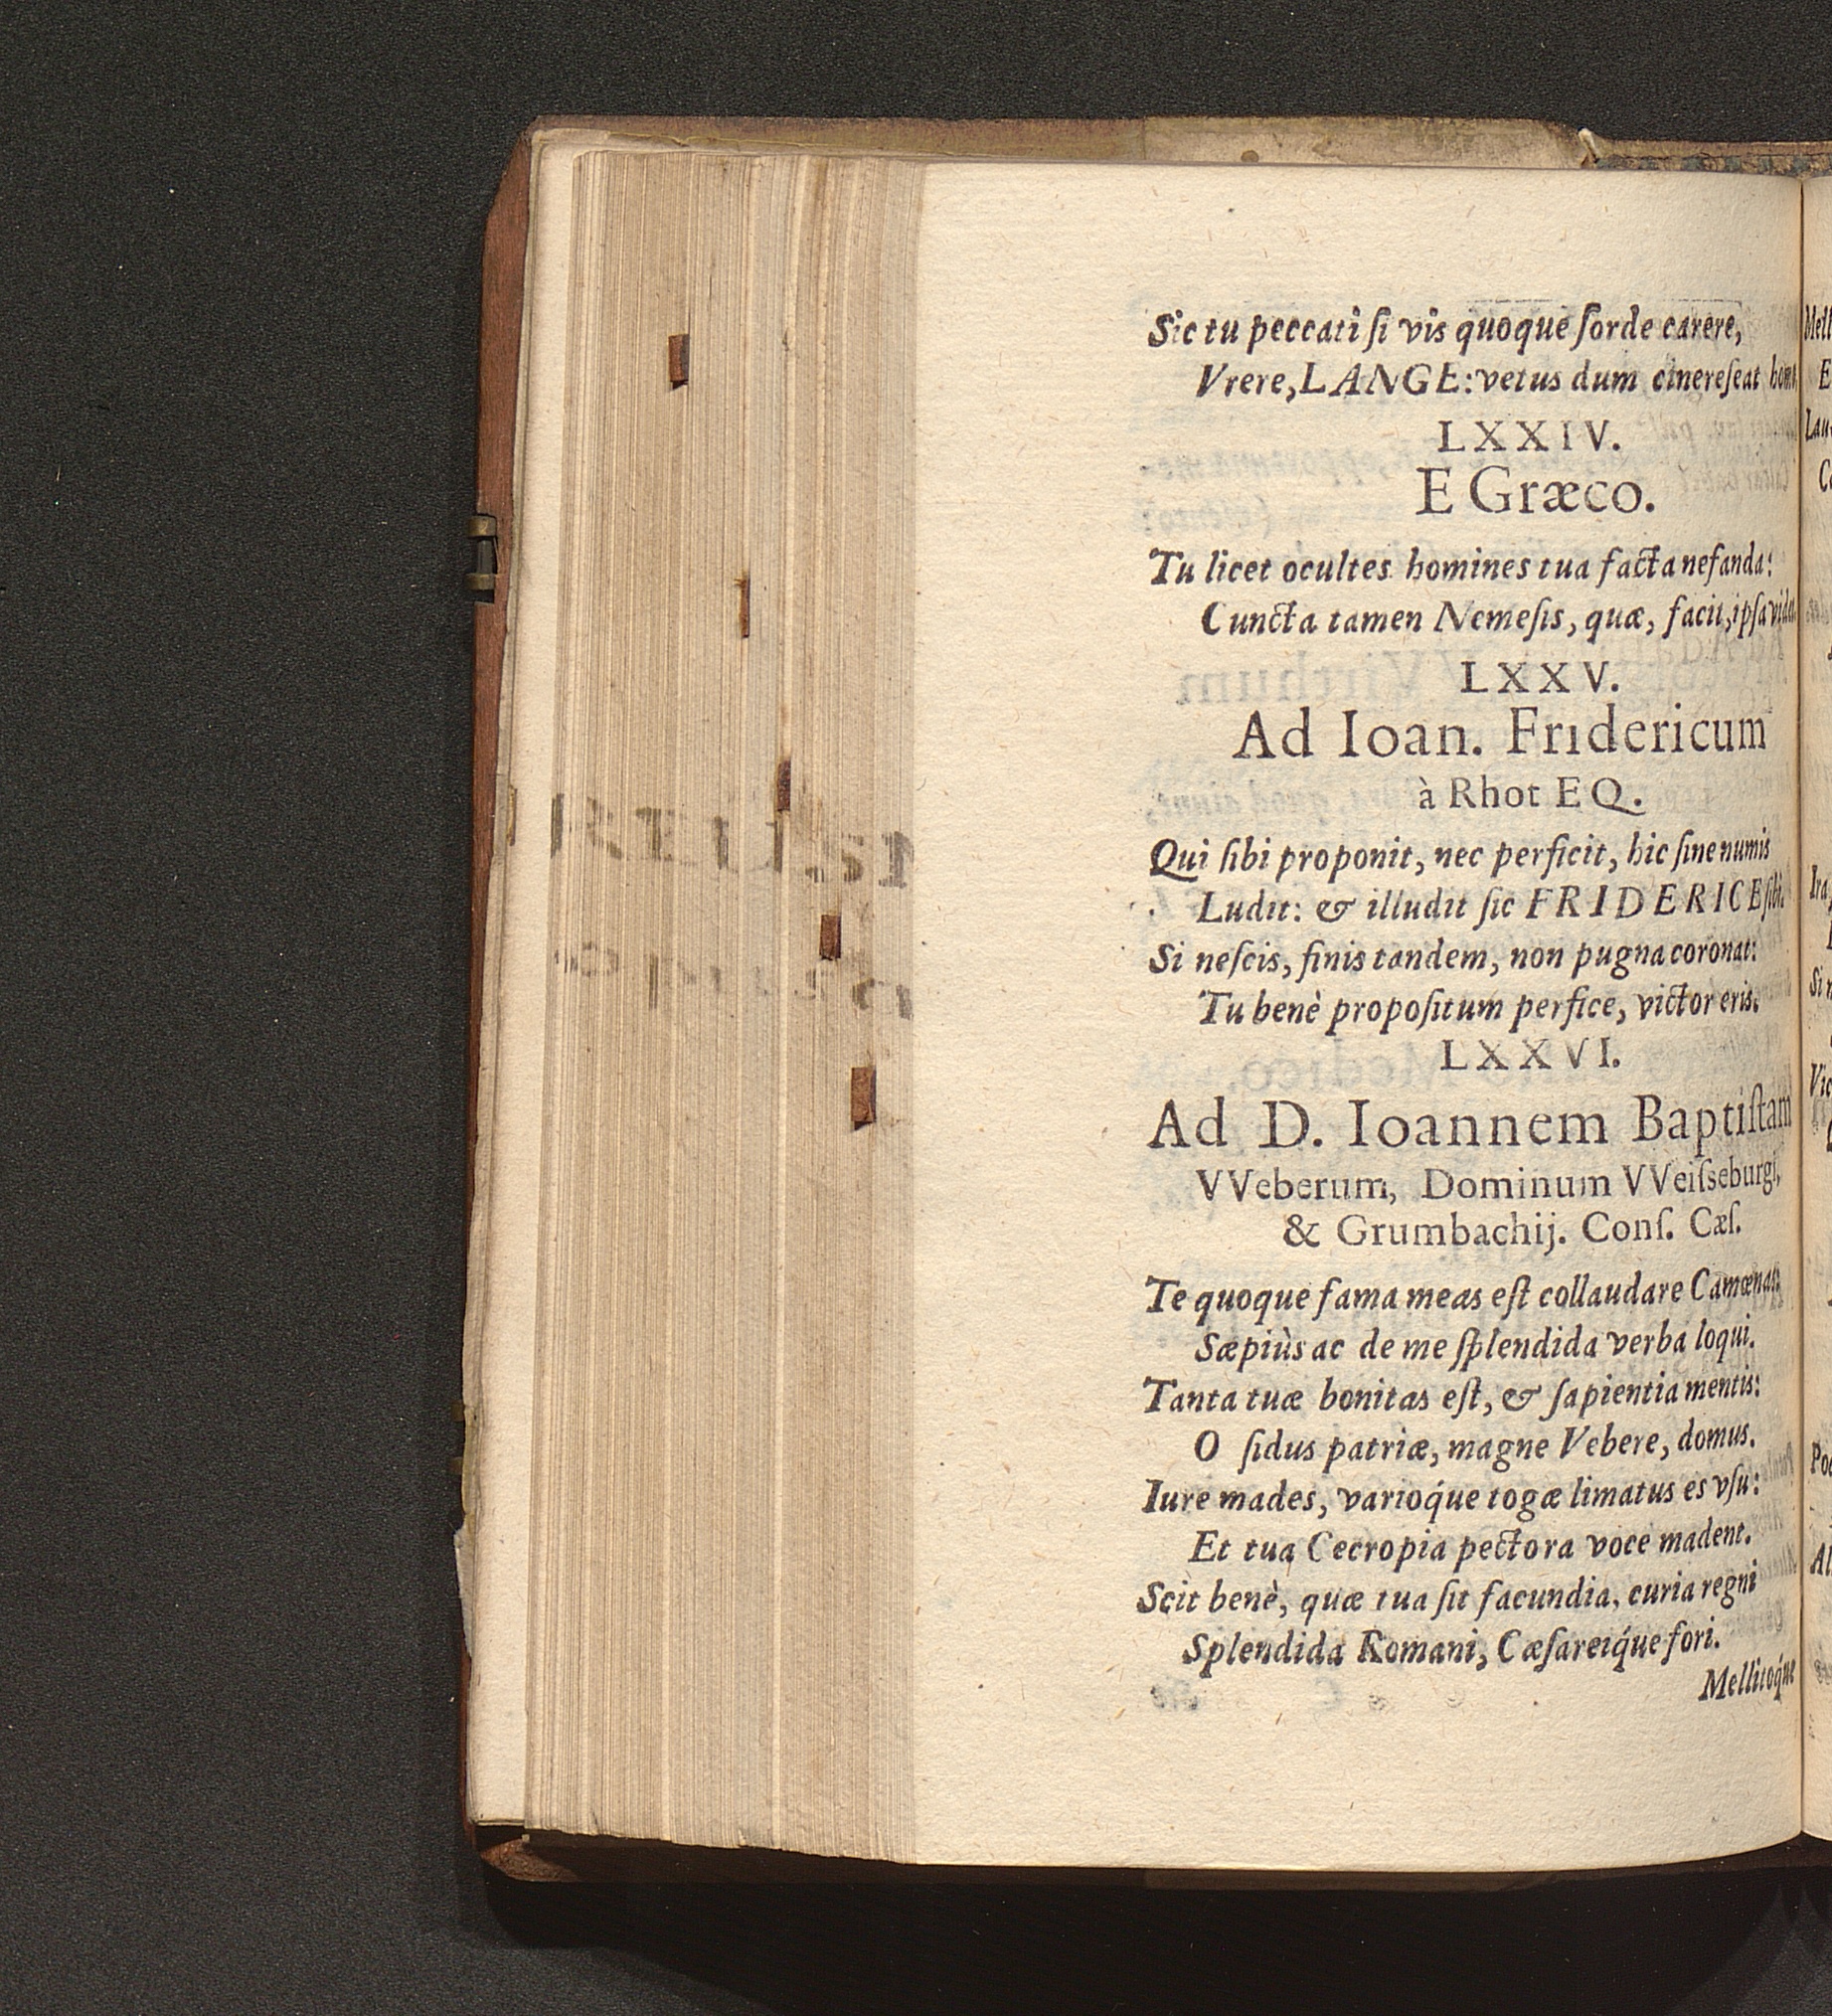 Sic tu peccati ſi vis quoque ſorde carere,
Vrere, LANGE: vetus dum cinereſeat
LXXIV.
E Græco.
Tu licet ocultes homines tua facta nefanda:
Cuncta tamen Nemeſis, quæ, facit, ipſa
LXXV.
Ad Ioan. Fridericum
à Rhot EQ.
Qui ſibi proponit, nec perficit, hic ſine numis
Ludit: & illudit ſic FRIDERICE ſibi.
Si neſcis, finis tandem, non pugna coronat:
Tu benè propoſitum perfice, victor eris.
LXXVI.
Ad D. Ioannem Baptiſtam
VVeberum, Dominum VVeiſseburgi,
& Grumbachij. Conſ. Cæſ.
Te quoque fama meas eſt collaudare Camœnas:
Sæpiùs ac de me ſplendida verba loqui.
Tanta tuæ bonitas eſt, & ſapientia mentis:
O ſidus patriæ, magne Vebere, domus.
Iure mades, varioq́ue togæ limatus es vſu:
Et tua Cecropia pectora voce madent.
Scit benè, quæ tua ſit facundia, curia regni
Splendida Romani, Cæſareiq́ue fori.
Mellitoq́ue